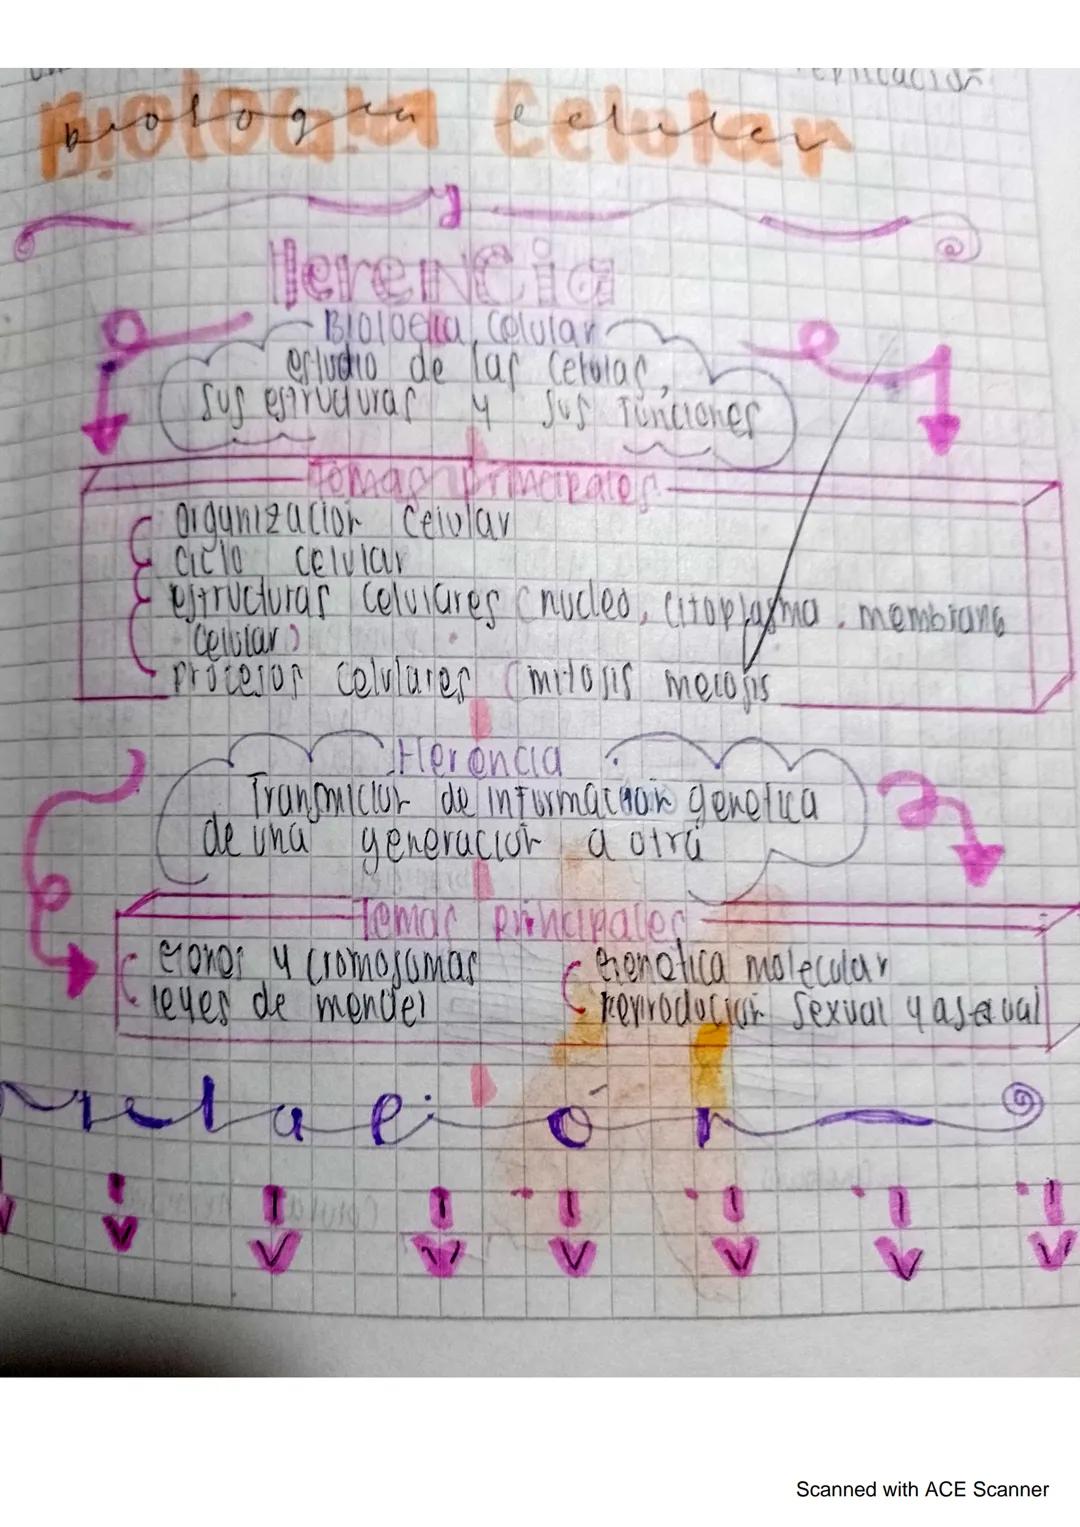 Biologia Celular
y
Herencia
Biologia Celular
estudio de las Celulas,
sus estructuras y sus funciones
Temas principales
organizacion celular
ciclo celular
estructuras celulares (nucleo, citoplasma, membrana
celular)
procesos celulares (mitosis meiosis
Herencia
Transmicion de informacion genetica
de una generacion a otra
Temas principales
Genes y cromosomas
Genetica molecular
leyes de mendel
Reproduccion Sexual y asexual
relación
Scanned with ACE Scanner